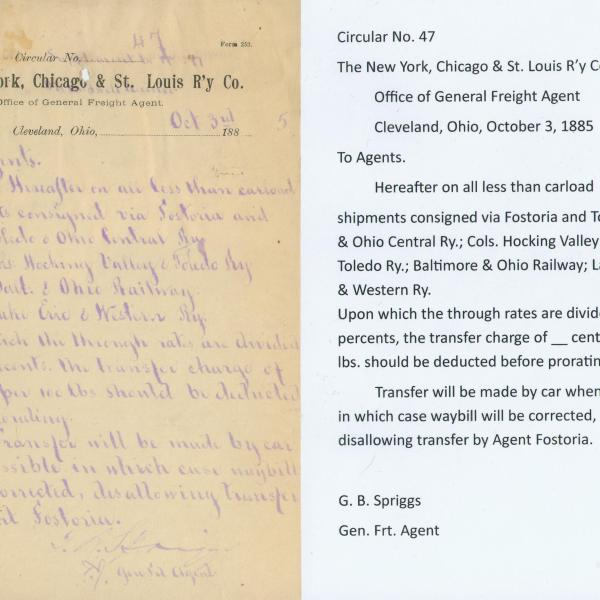 47
Form 253.
Circular No.
ork, Chicago & St. Louis R'y Co.
Office of General Freight Agent.
Cleveland, Ohio, Oct 3rd 188 5
ents.
Hereafter on all less than carload
ts consigned via Fostoria and
oledo & Ohio Central Ry
s. Hocking Valley & Toledo Ry
alt. & Ohio Railway.
ake Erie & Western Ry.
ich the through rates are divided
cents. the transfer charge of
per 100 lbs should be deducted
Transfer will be made by car
ssible in which case waybill
orrected, disallowing transfer
nt Fostoria.
Gen Frt Agent
Circular No. 47
The New York, Chicago & St. Louis R'y C
Office of General Freight Agent
Cleveland, Ohio, October 3, 1885
To Agents.
Hereafter on all less than carload
shipments consigned via Fostoria and To
& Ohio Central Ry.; Cols. Hocking Valley
Toledo Ry.; Baltimore & Ohio Railway; La
& Western Ry.
Upon which the through rates are divide
percents, the transfer charge of __ cent
lbs. should be deducted before proratin
Transfer will be made by car when
in which case waybill will be corrected,
disallowing transfer by Agent Fostoria.
G. B. Spriggs
Gen. Frt. Agent